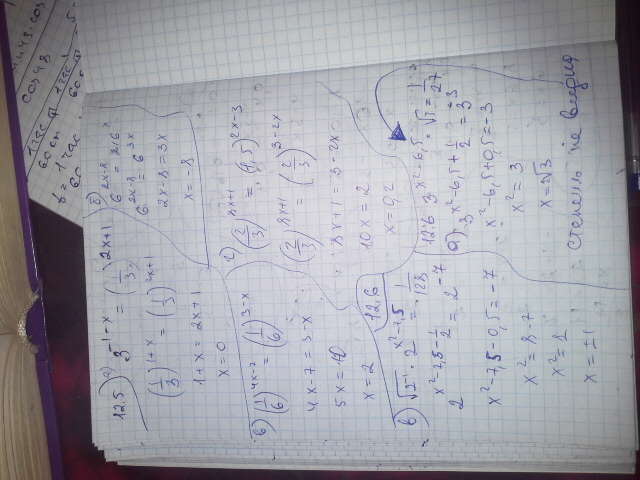 12.5) а) 3^(-1-x) = (1/3)^(2x+1)
(1/3)^(1+x) = (1/3)^(2x+1)
1+x = 2x+1
x = 0
б) 6^(2x-8) = 216^x
6^(2x-8) = 6^(3x)
2x-8 = 3x
x = -8
в) (1/6)^(4x-7) = (1/6)^(3-x)
4x-7 = 3-x
5x = 10
x = 2
г) (2/3)^(8x+1) = (1,5)^(2x-3)
(2/3)^(8x+1) = (2/3)^(3-2x)
8x+1 = 3-2x
10x = 2
x = 0,2
12.6
в) √2^(-1) · 2^(x²-7,5) = 1/128
2^(x²-7,5-1/2) = 2^(-7)
x²-7,5-0,5 = -7
x² = 8-7
x² = 1
x = ±1
12.6 3^(x²-6,5) · √3 = 1/27
а) 3^(x²-6,5+1/2) = 3^(-3)
x²-6,5+0,5 = -3
x² = 3
x = ±√3
степень не видно